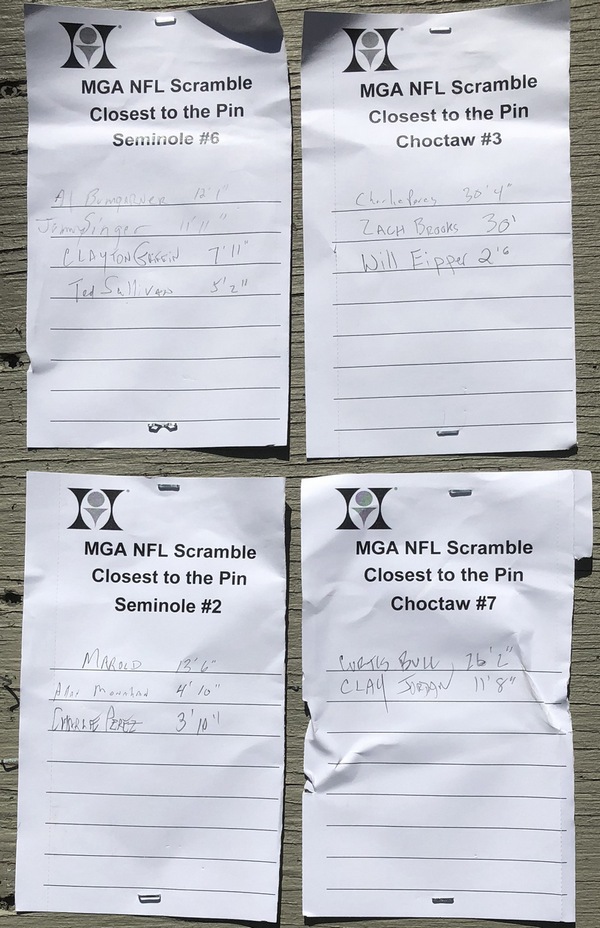 MGA NFL Scramble
Closest to the Pin
Seminole #6
Al Bumgarner 12'1"
Jimmy Singer 11'11"
CLAYTON GRIFFIN 7'11"
Ted Sullivan 5'2"
MGA NFL Scramble
Closest to the Pin
Choctaw #3
Charlie Perez 30'4"
ZACH BROOKS 30'
Will Eipper 2'6
MGA NFL Scramble
Closest to the Pin
Seminole #2
MAROLD 13'6"
4'10"
CHARLIE PEREZ 3'10"
MGA NFL Scramble
Closest to the Pin
Choctaw #7
CURTIS BULL 26'2"
CLAY JORDAN 11'8"